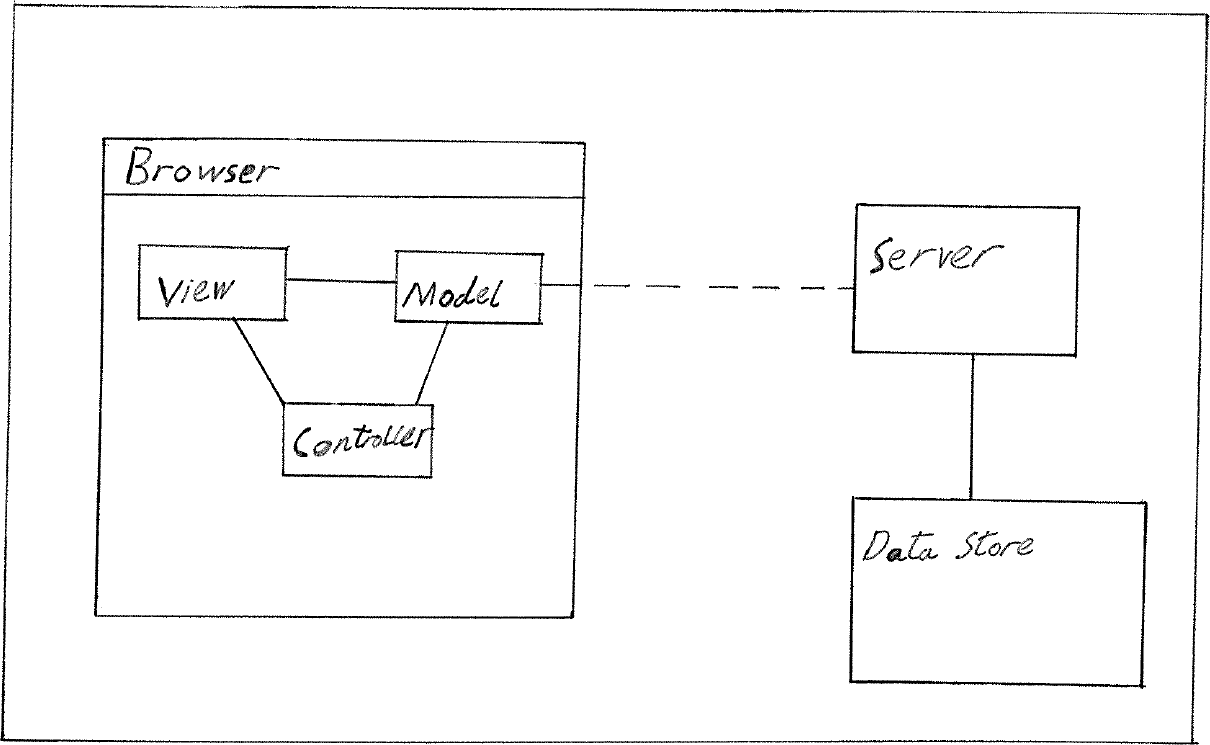 Browser
View
Model
Controller
Server
Data Store